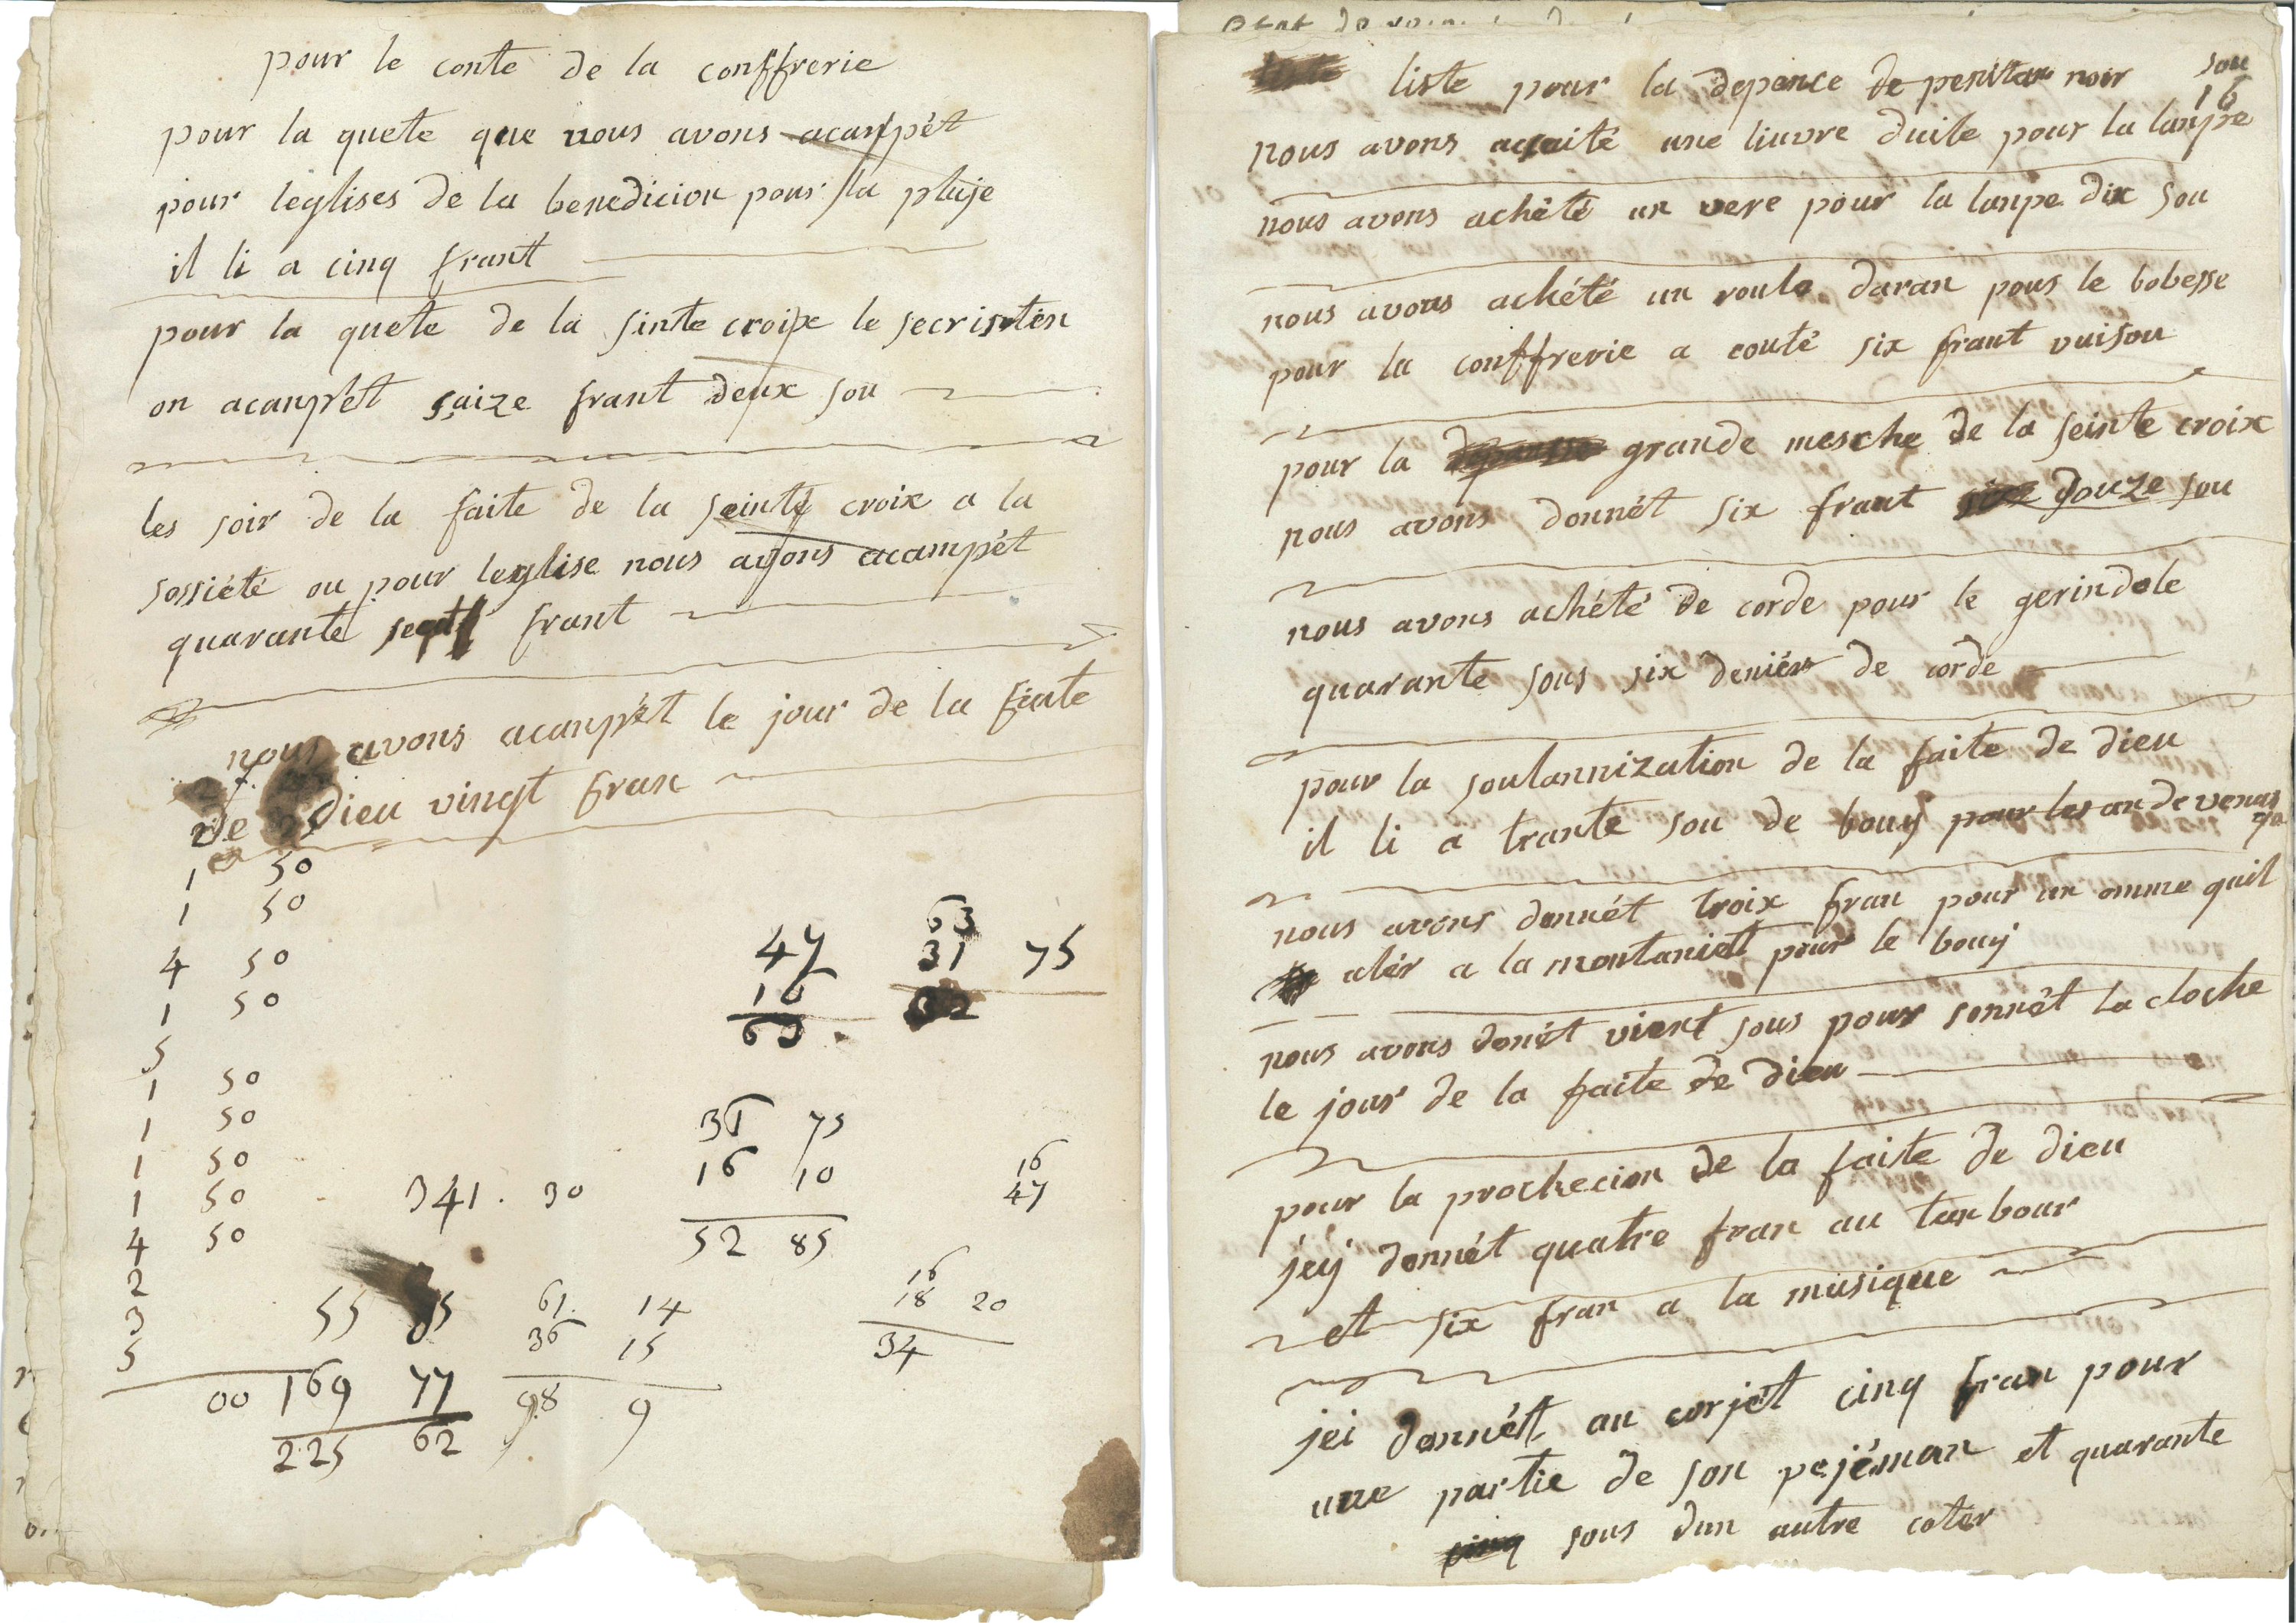 pour le conte de la conffrerie
pour la quete que nous avons acanpét
pour leglises de la benedicion pour la pluje
il li a cinq frant
pour la quete de la sinte croix le secristen
on acanpét saize frant deux sou
les soir de la faite de la seinte croix a la
sossiété ou pour leglise nous avons acampét
quarante sept frant
nous avons acanpét le jour de la feate
de dieu vingt fran
1 50
1 50
4 50
1 50
5
1 50
1 50
1 50
1 50
4 50
2
3
5
00
47
16
63
63
31 75
36 75
16 10
52 85
16
47
341. 30
55 85
169 77
225 62
61. 14
36 15
98 9
16
18 20
34
liste pour la depence de penitan noir sou
16
nous avons acaité une liuvre duile pour la lanpe
nous avons achété un vere pour la lanpe dix sou
nous avons achété un roule daran pour le bobesse
pour la conffrerie a couté six frant vuisou
pour la grande mesche de la seinte croix
nous avons donnét six frant douze sou
nous avons achété de corde pour le gerindole
quarante sous six deniérs de corde
pour la soulannization de la faite de dieu
il li a trante sou de bouy pour les an de venus
nous avons donnét troix fran pour un omme quil
alér a la montaniet pour le bouy
nous avons donét vient sous pour sonnét la cloche
le jour de la faite de dieu
pour la prochecion de la faite de dieu
jey donnét quatre fran au tanbour
et six fran a la musique
jei donnét au corjet cinq fran pour
une partie de son pejéman et quarante
cinq sous dun autre coter